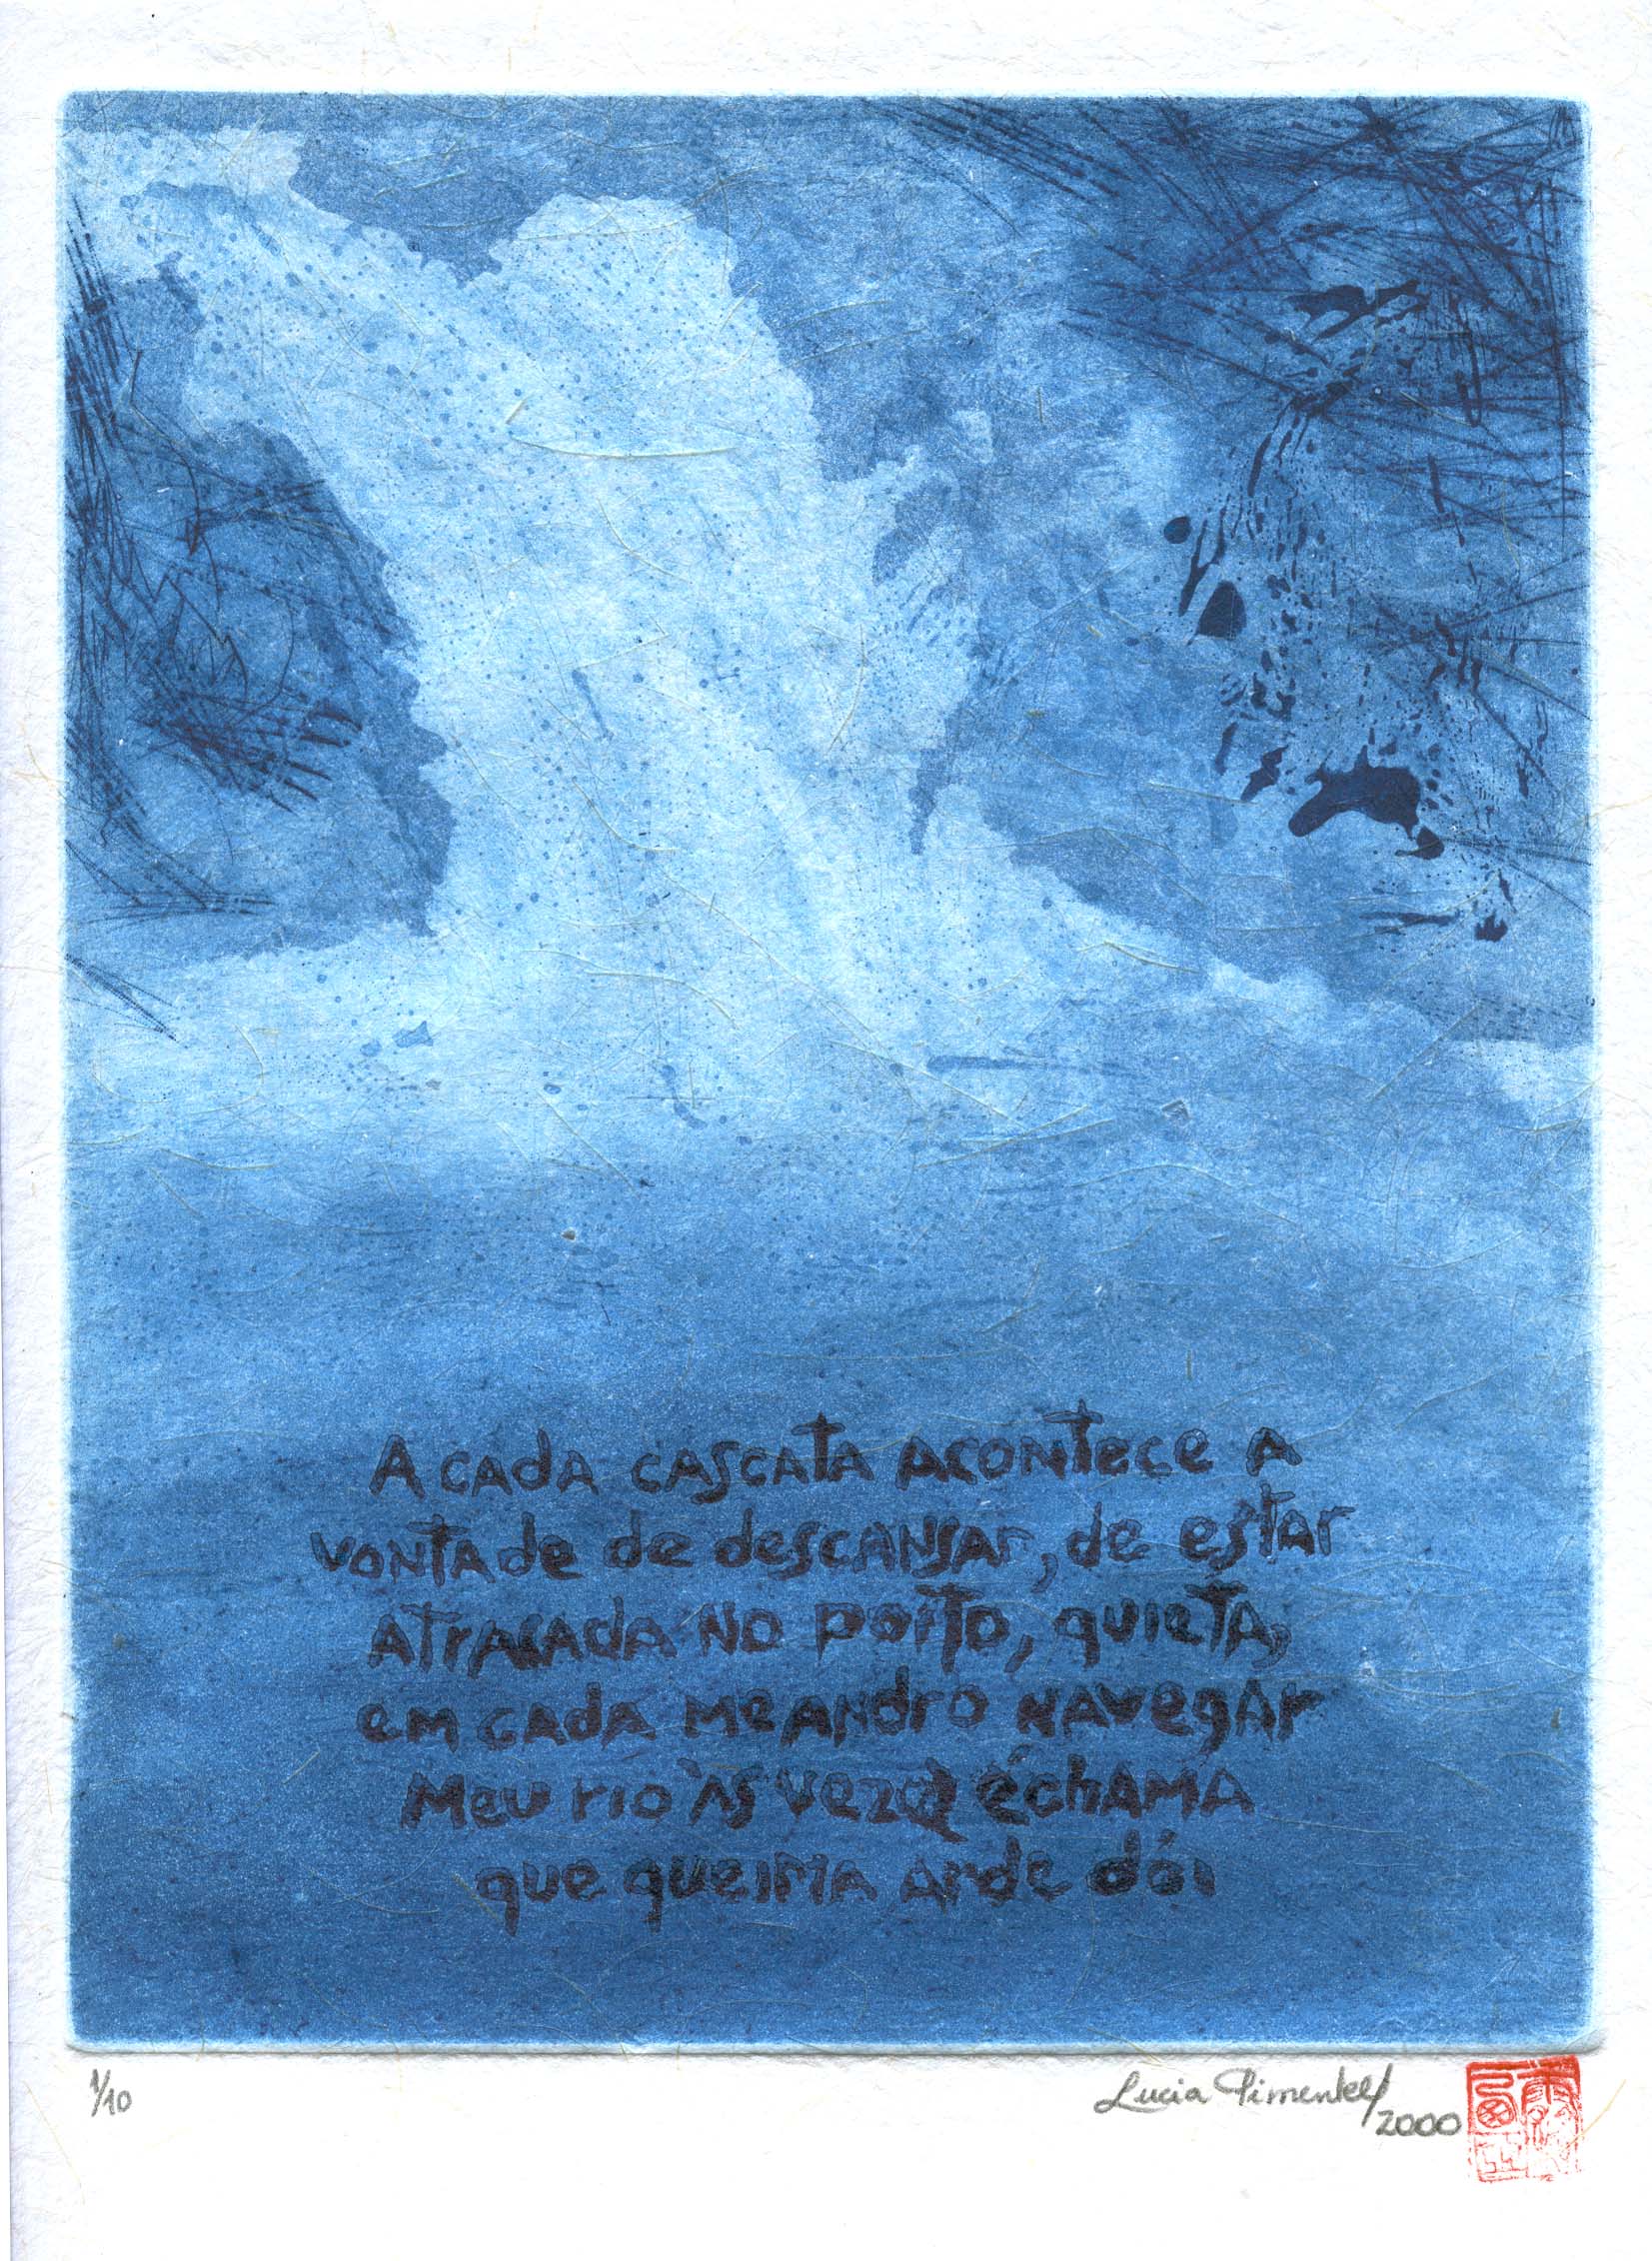 A cada cascata acontece a
vontade de descansar, de estar
atracada no porto, quieta,
em cada meandro navegar
Meu rio às vezes é chama
que queima arde dói
1/10
Lucia Pimentel/
2000